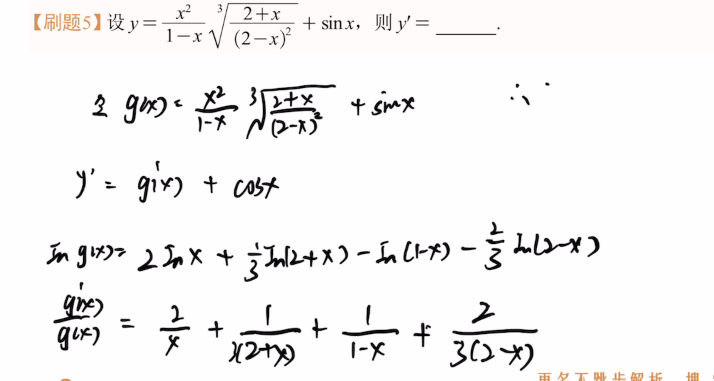 【刷题5】设 y = \frac{x^2}{1-x} \sqrt[3]{\frac{2+x}{(2-x)^2}} + sin x，则 y′ = ______.
令 g(x) = \frac{x^2}{1-x} \sqrt[3]{\frac{2+x}{(2-x)^2}} + sin x ∴
y' = g'(x) + cos x
ln g(x) = 2 ln x + \frac{1}{3} ln(2+x) - ln(1-x) - \frac{2}{3} ln(2-x)
\frac{g'(x)}{g(x)} = \frac{2}{x} + \frac{1}{3(2+x)} + \frac{1}{1-x} + \frac{2}{3(2-x)}